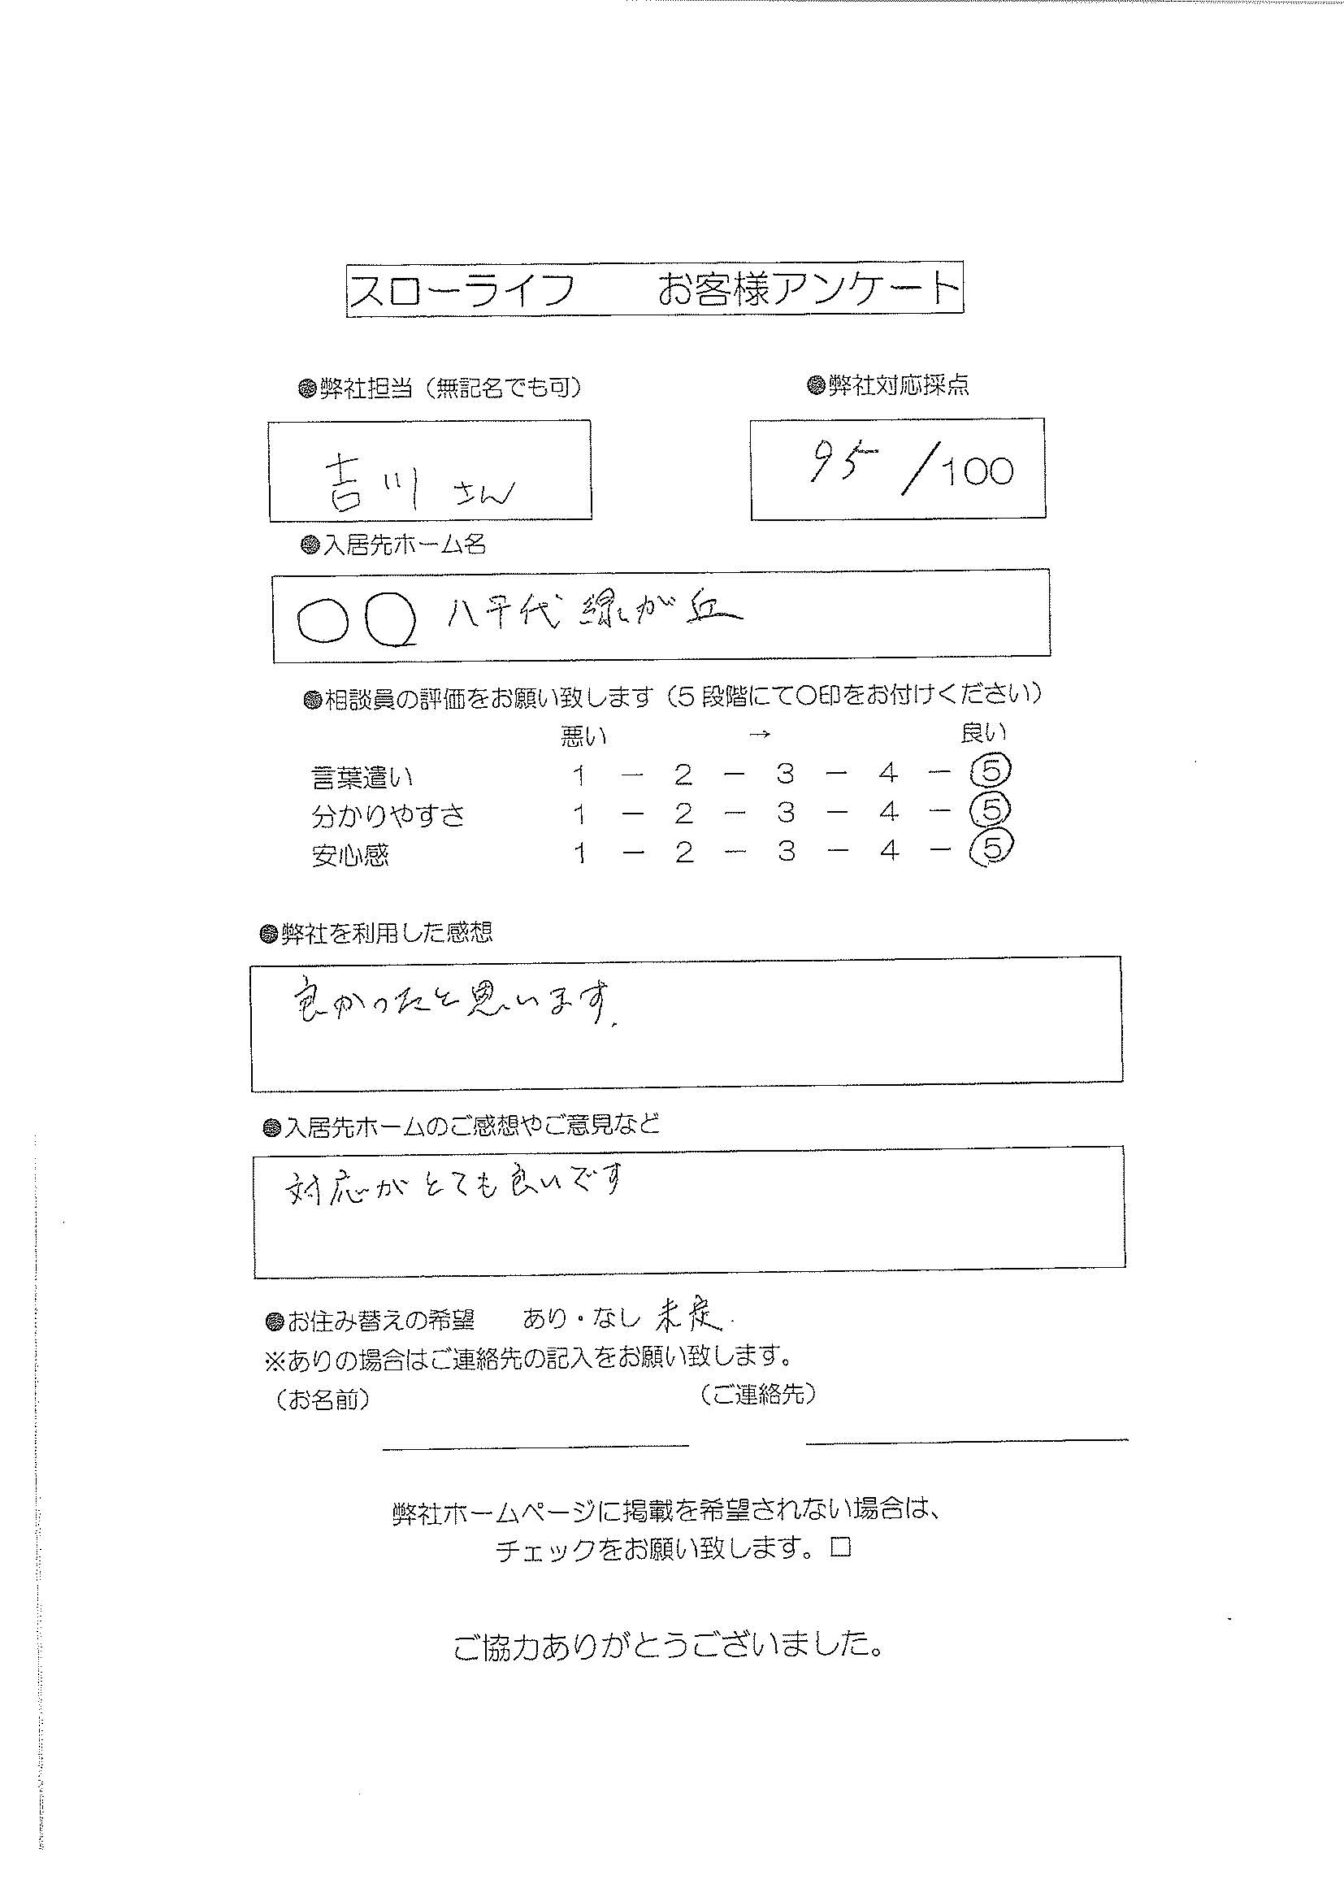 スローライフ　お客様アンケート
●弊社担当（無記名でも可）　●弊社対応採点
吉川さん　95/100
●入居先ホーム名
○○ 八千代緑が丘
●相談員の評価をお願い致します（5段階にて○印をお付けください）
悪い　→　良い
言葉遣い　1 － 2 － 3 － 4 － 5
分かりやすさ　1 － 2 － 3 － 4 － 5
安心感　1 － 2 － 3 － 4 － 5
●弊社を利用した感想
良かったと思います.
●入居先ホームのご感想やご意見など
対応がとても良いです
●お住み替えの希望　あり・なし 未定.
※ありの場合はご連絡先の記入をお願い致します。
（お名前）　（ご連絡先）
弊社ホームページに掲載を希望されない場合は、
チェックをお願い致します。□
ご協力ありがとうございました。